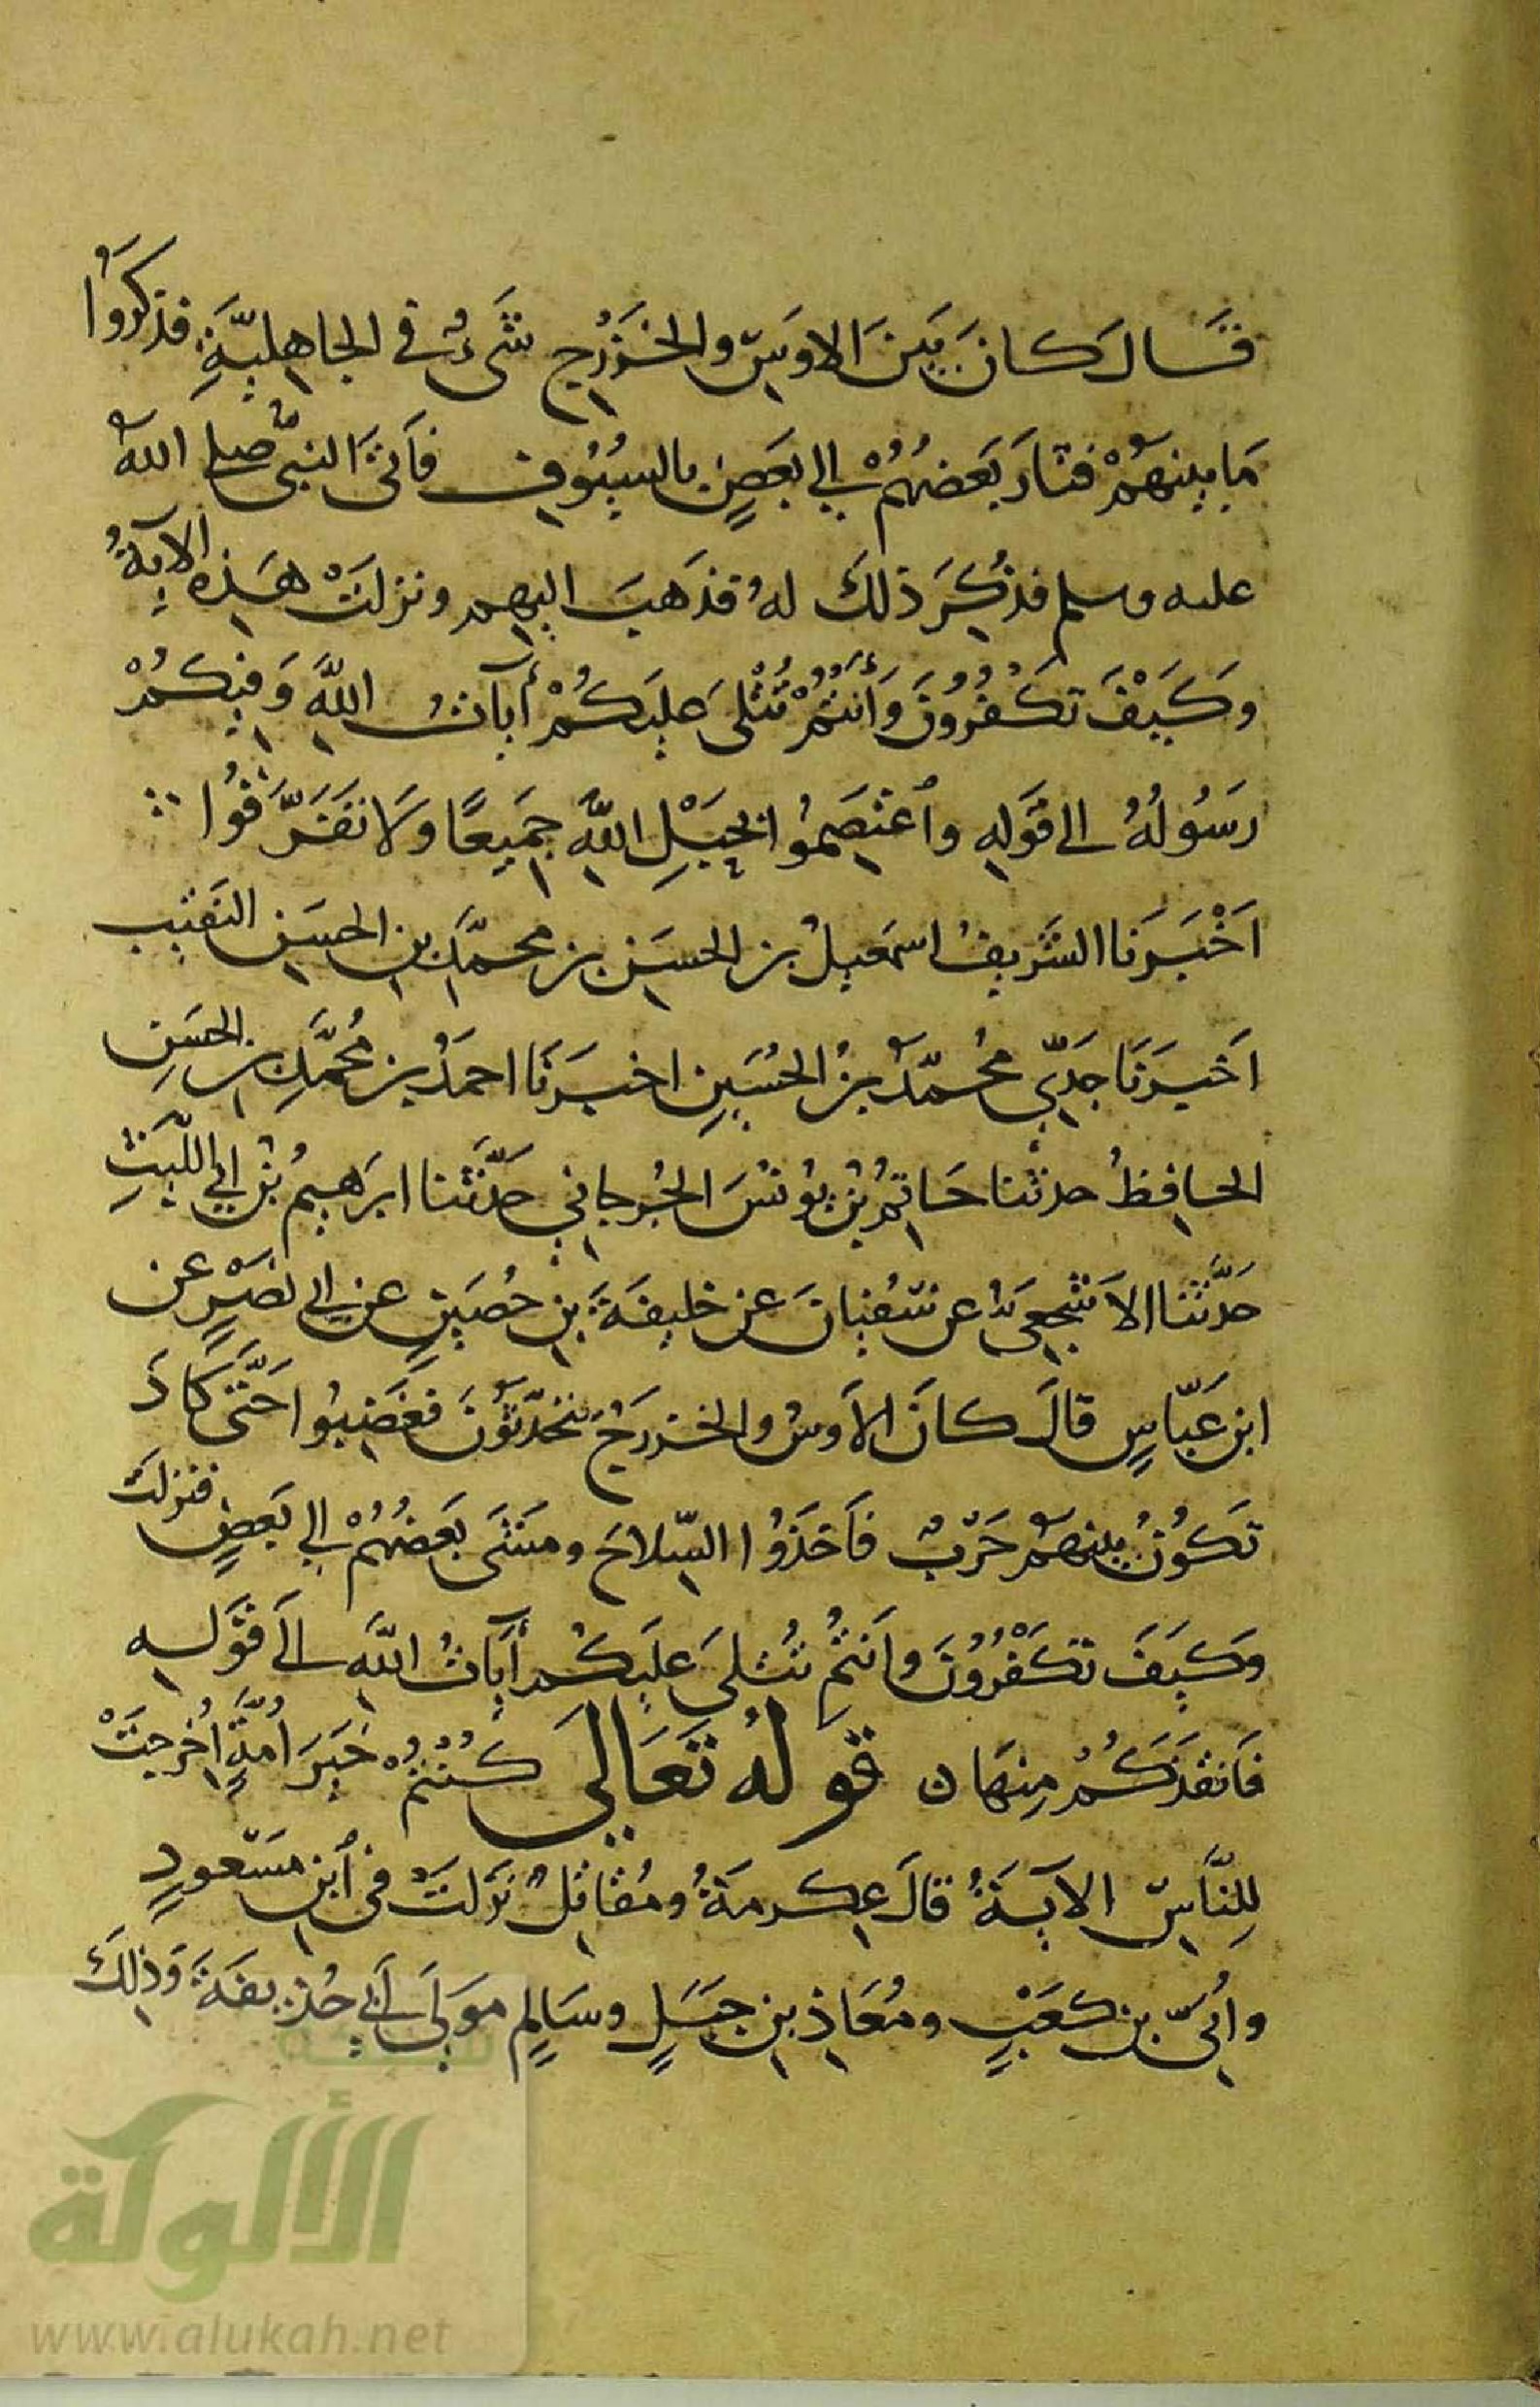 قَال كانَ بَينَ الاوَسِ والخَزرَجِ شَىءٌ في الجاهِليَّةِ فذكروا
مَا بينهُمْ فثارَ بَعضُهُمْ الى بعَضٍ بالسيُوفِ فأتَى النبىُّ صلى الله
عليه وسلم فذُكِرَ ذلكَ لهُ فذهَبَ اليهِم ونزلَتْ هَذِه الآيةُ
وَكَيْفَ تَكْفُرُونَ وَأَنْتُمْ تُتْلَى عَلَيكُمْ أياتُ اللَّهِ وَفِيكُمْ
رَسُولُهُ الى قوَلِهِ وٱعْتَصِمُوا بِحَبْلِ اللَّهِ جَمِيعًا وَلَا تفَرَّقُوا
اَخْبَرَنا الشَرِيفُ اسمَعيلُ بن الحسَن بن محمَّد بنِ الحسَين النقيب
اَخبَرَنَا جَدِّي محُمَّد بنُ الحُسَينِ اخبَرنَا احمَدُ بن مُحمَّدِ بن الحسَنِ
الحافِظُ حدثنا حَاتِمُ بْنُ يوُنسَ الجُرجاني حدَّثنا ابرَهيمُ بْنُ ابي اللَّيثِ
حدَّثنا الاَشجعىُّ عن سُفيانَ عن خليفَةَ بنِ حُصَينٍ عن ابى نصَرٍ عن
ابن عَبّاسٍ قالَ كانَ الاَوسُ والخزرَجُ يتحدَّثونَ فغَضِبُوا حَتَّى كادَ
تَكُونُ بينهُم حَرْبٌ فاَخَذُوا السِّلاحَ ومشَى بَعضُهُمْ الى بَعضٍ فنزلت
وَكَيَفَ تكَفْرُونَ وانتُم تُتلىَ عَليكُم أيَاتُ اللَّه الىَ قوَلِه
فَانقَذكُم مِنهَا ن قولهُ تعَالى كُنتمُ خَيرَ اُمَّةٍ اُخرِجَتْ
لِلنَّاسِ الآيَةُ قالَ عِكرمَةُ ومُقاتِلُ نزَلَت فى ٱبنِ مَسعُودٍ
واُبىِّ بن كعَبٍ ومُعَاذِ بنِ جبَلٍ وسَالِمٍ موَلَى اَبي حُذيفَةَ وَذلِكَ
شبكة
الألوكة
www.alukah.net